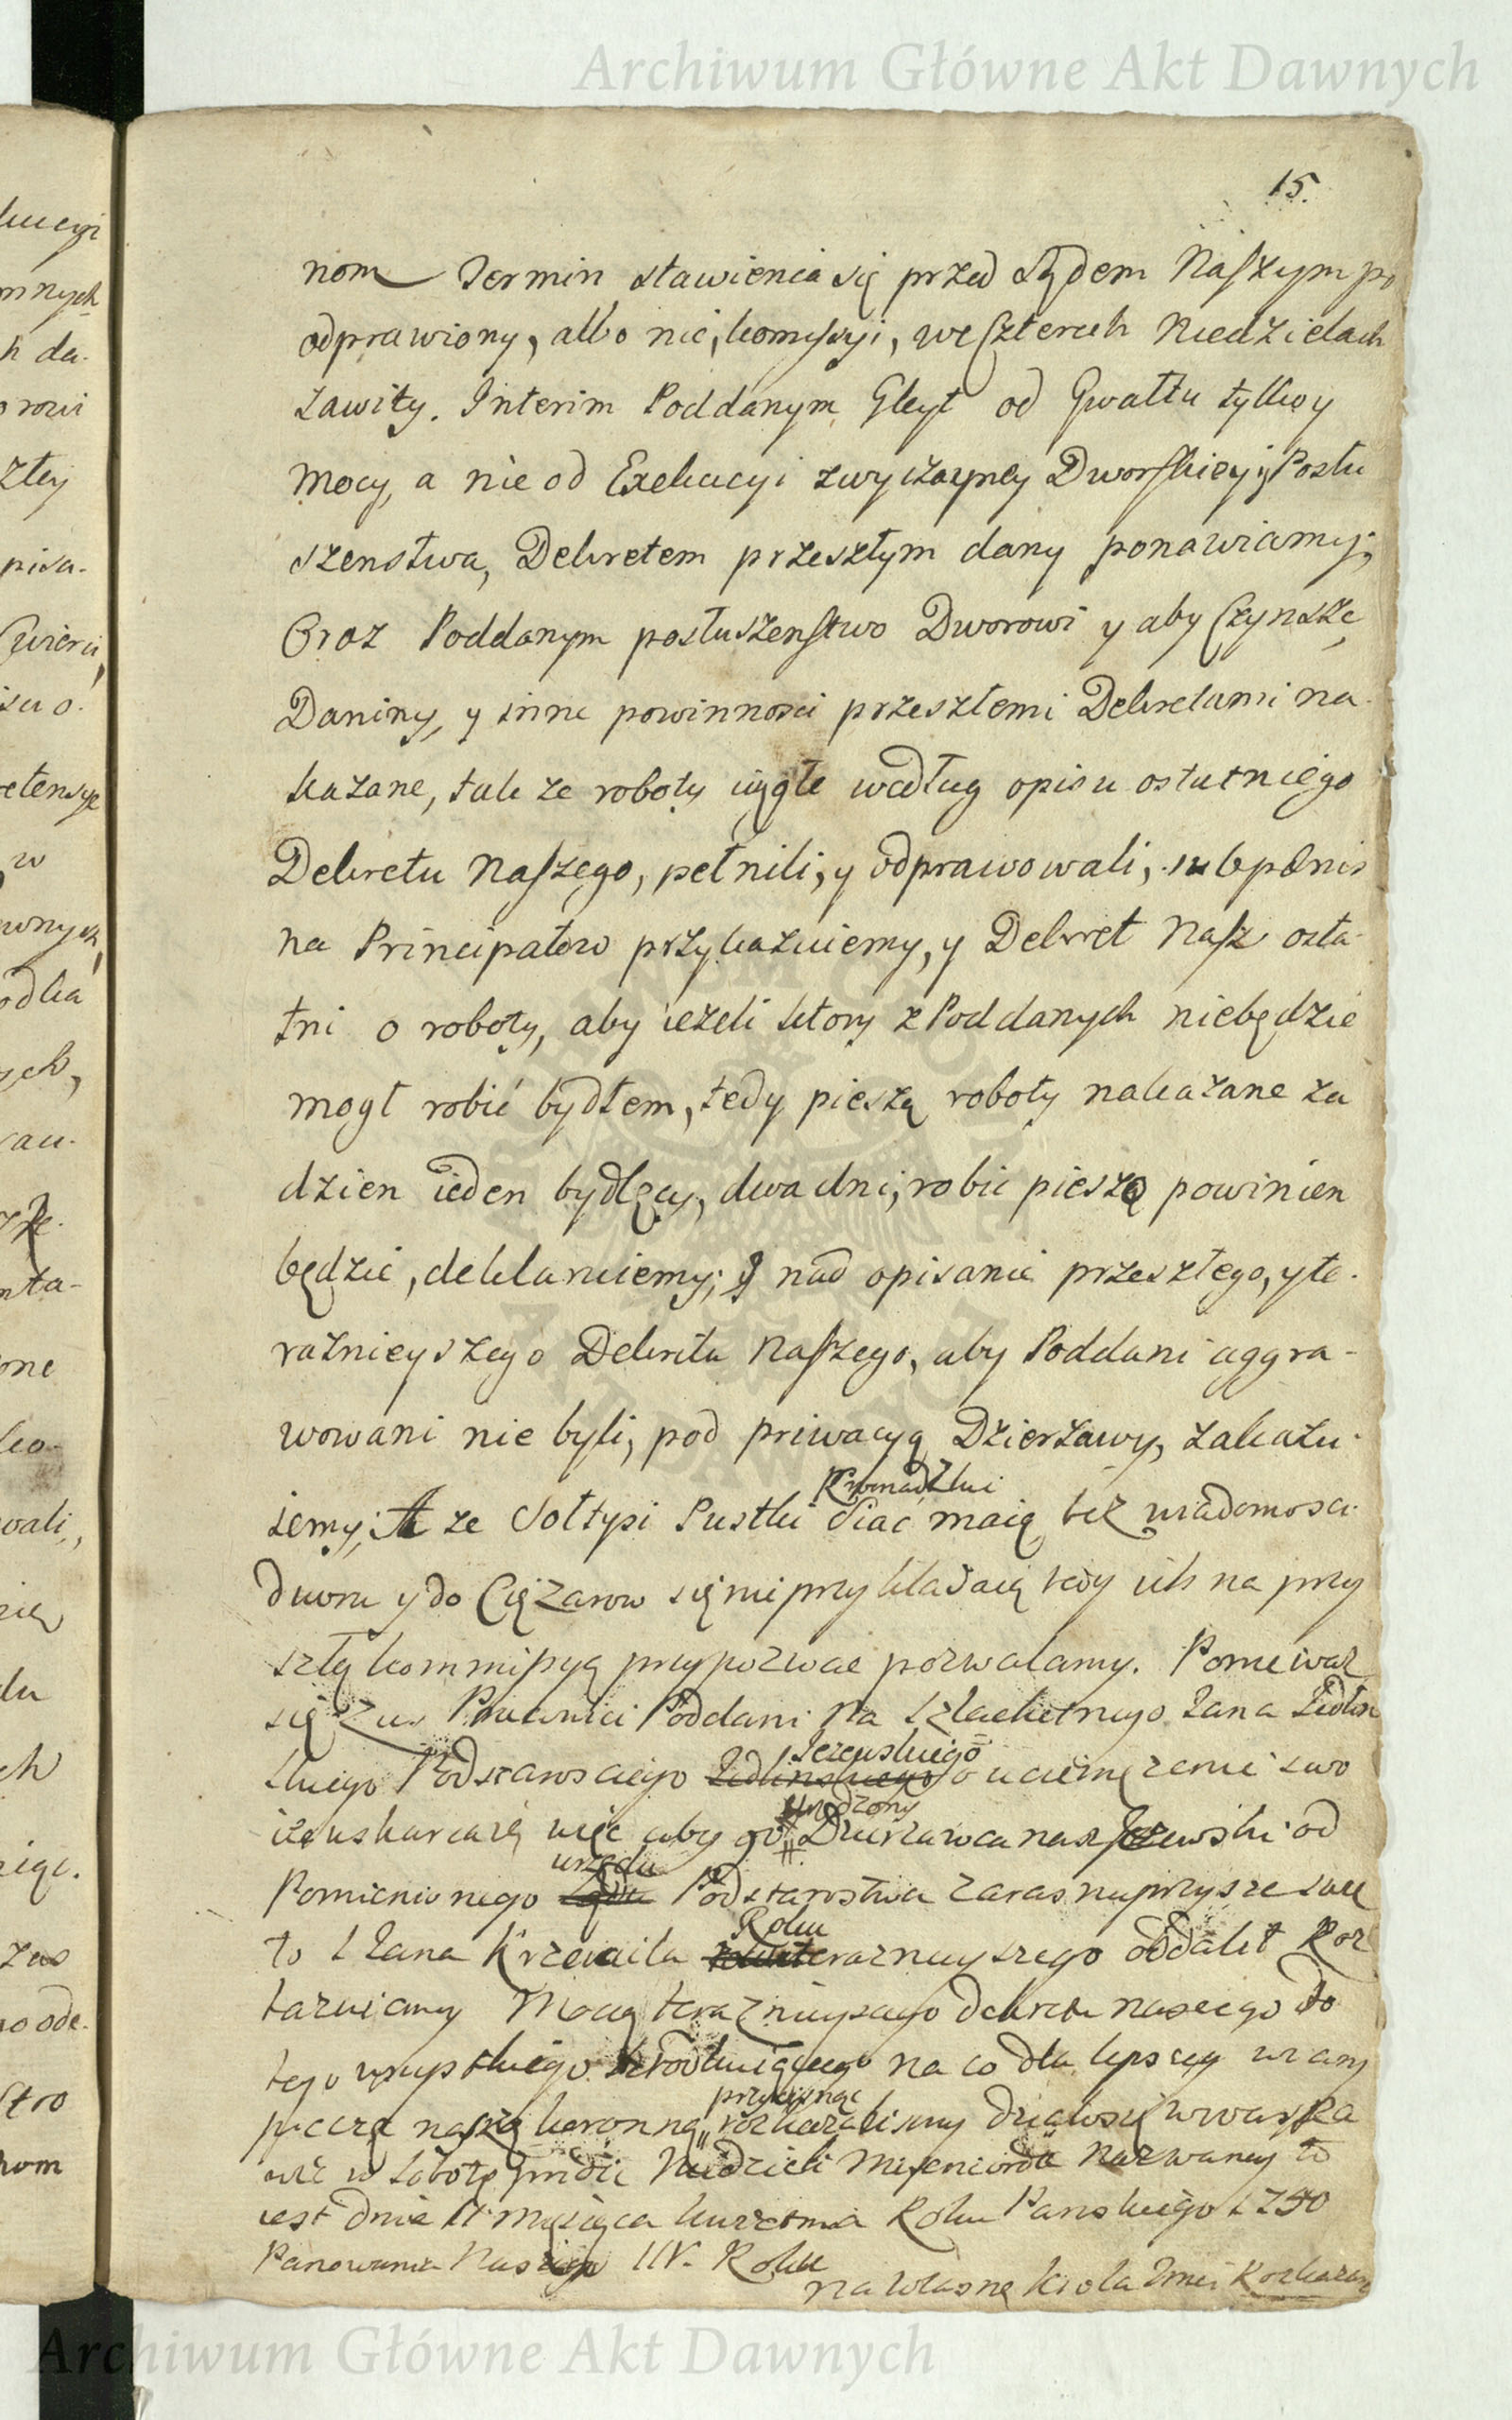 Archiwum Główne Akt Dawnych
15.
nom Termin stawienia się przed Sądem Naszym po
odprawioney, albo nie, komissyi, we Czterech Niedzielach
zawity. Interim Poddanym Gleyt od Gwałtu tylko y
mocy, a nie od Exekucyi zwyczayney Dworskiey y Posłu
szenstwa, Dekretem przeszłym dany ponawiamy;
Oraz Poddanym posłuszenstwo Dworowi y aby Czynsze
Daniny, y inne powinnosci przeszłemi Dekretami na-
kazane, tak ze roboty ciągłe według opisu ostatniego
Dekretu Naszego, pełnili, y odprawowali, sub pœnis
na Principałow przykazuiemy, y Dekret Nasz osta-
tni o roboty, aby ieżeli ktory z Poddanych niebędzie
mogł robić bydłem, tedy pieszą roboty nakazane za
dzien ieden bydlęcy, dwa dni, robic pieszo powinien
będzie, deklaruiemy; y nad opisanie przeszłego, y te-
raznieyszego Dekretu Naszego, aby Poddani aggra-
wowani nie byli, pod priwacyą Dzierżawy, zakazu-
iemy; A ze Sołtysi Pustki Siać maią bez wiadomosci
dworu y do Ciężarow się nie przykładaią tedy ich na przy
szłą kommissyą przypozwac pozwalamy. Poniewaz
się zas Poddani na Szlachetnego Jana
Podstarosciego Jezewskiego o uciemęzenie swo
ie uskarzaią więc aby go Urodzony Dzierzawca nasz Jezewski od
Pomienionego urzędu Podstarostwa zaraz
to S Jana Krzciciela Roku teraznieyszego oddalił Roz
kazuiemy Mocą teraznieyszego dekretu naszego do
tego wszystkiego na co dla lepszey wiary
pieczę naszą koronną przycisnąc rozkazalismy działo się w warsza
wie w Sobotę Niedzieli nazwaney to
iest dnia 11 miesiąca kwietnia Roku Panskiego 1750
Panowania Naszego Roku
na własne krola Jmci Rozkazan
Archiwum Główne Akt Dawnych